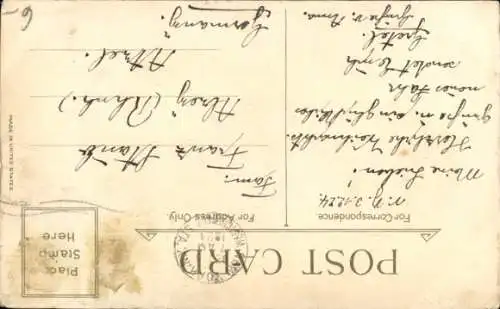 POST CARD
For Correspondence
For Address Only.
Place
Stamp
Here
N.Y. 3.12.24.
Meine Lieben!
Herzliche Weihnachts-
grüße u. ein glückliches
neues Jahr
sendet Euch
Gretel.
Grüße v. Anna.
Fam:
Franz
Alzey (Rhnh.)
Germany.
MADE IN UNITED STATES
6-